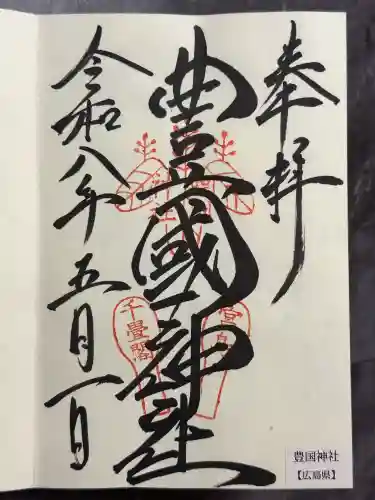 奉拝
豊國神社
令和八年五月一日
千畳閣
豊国神社
【広島県】